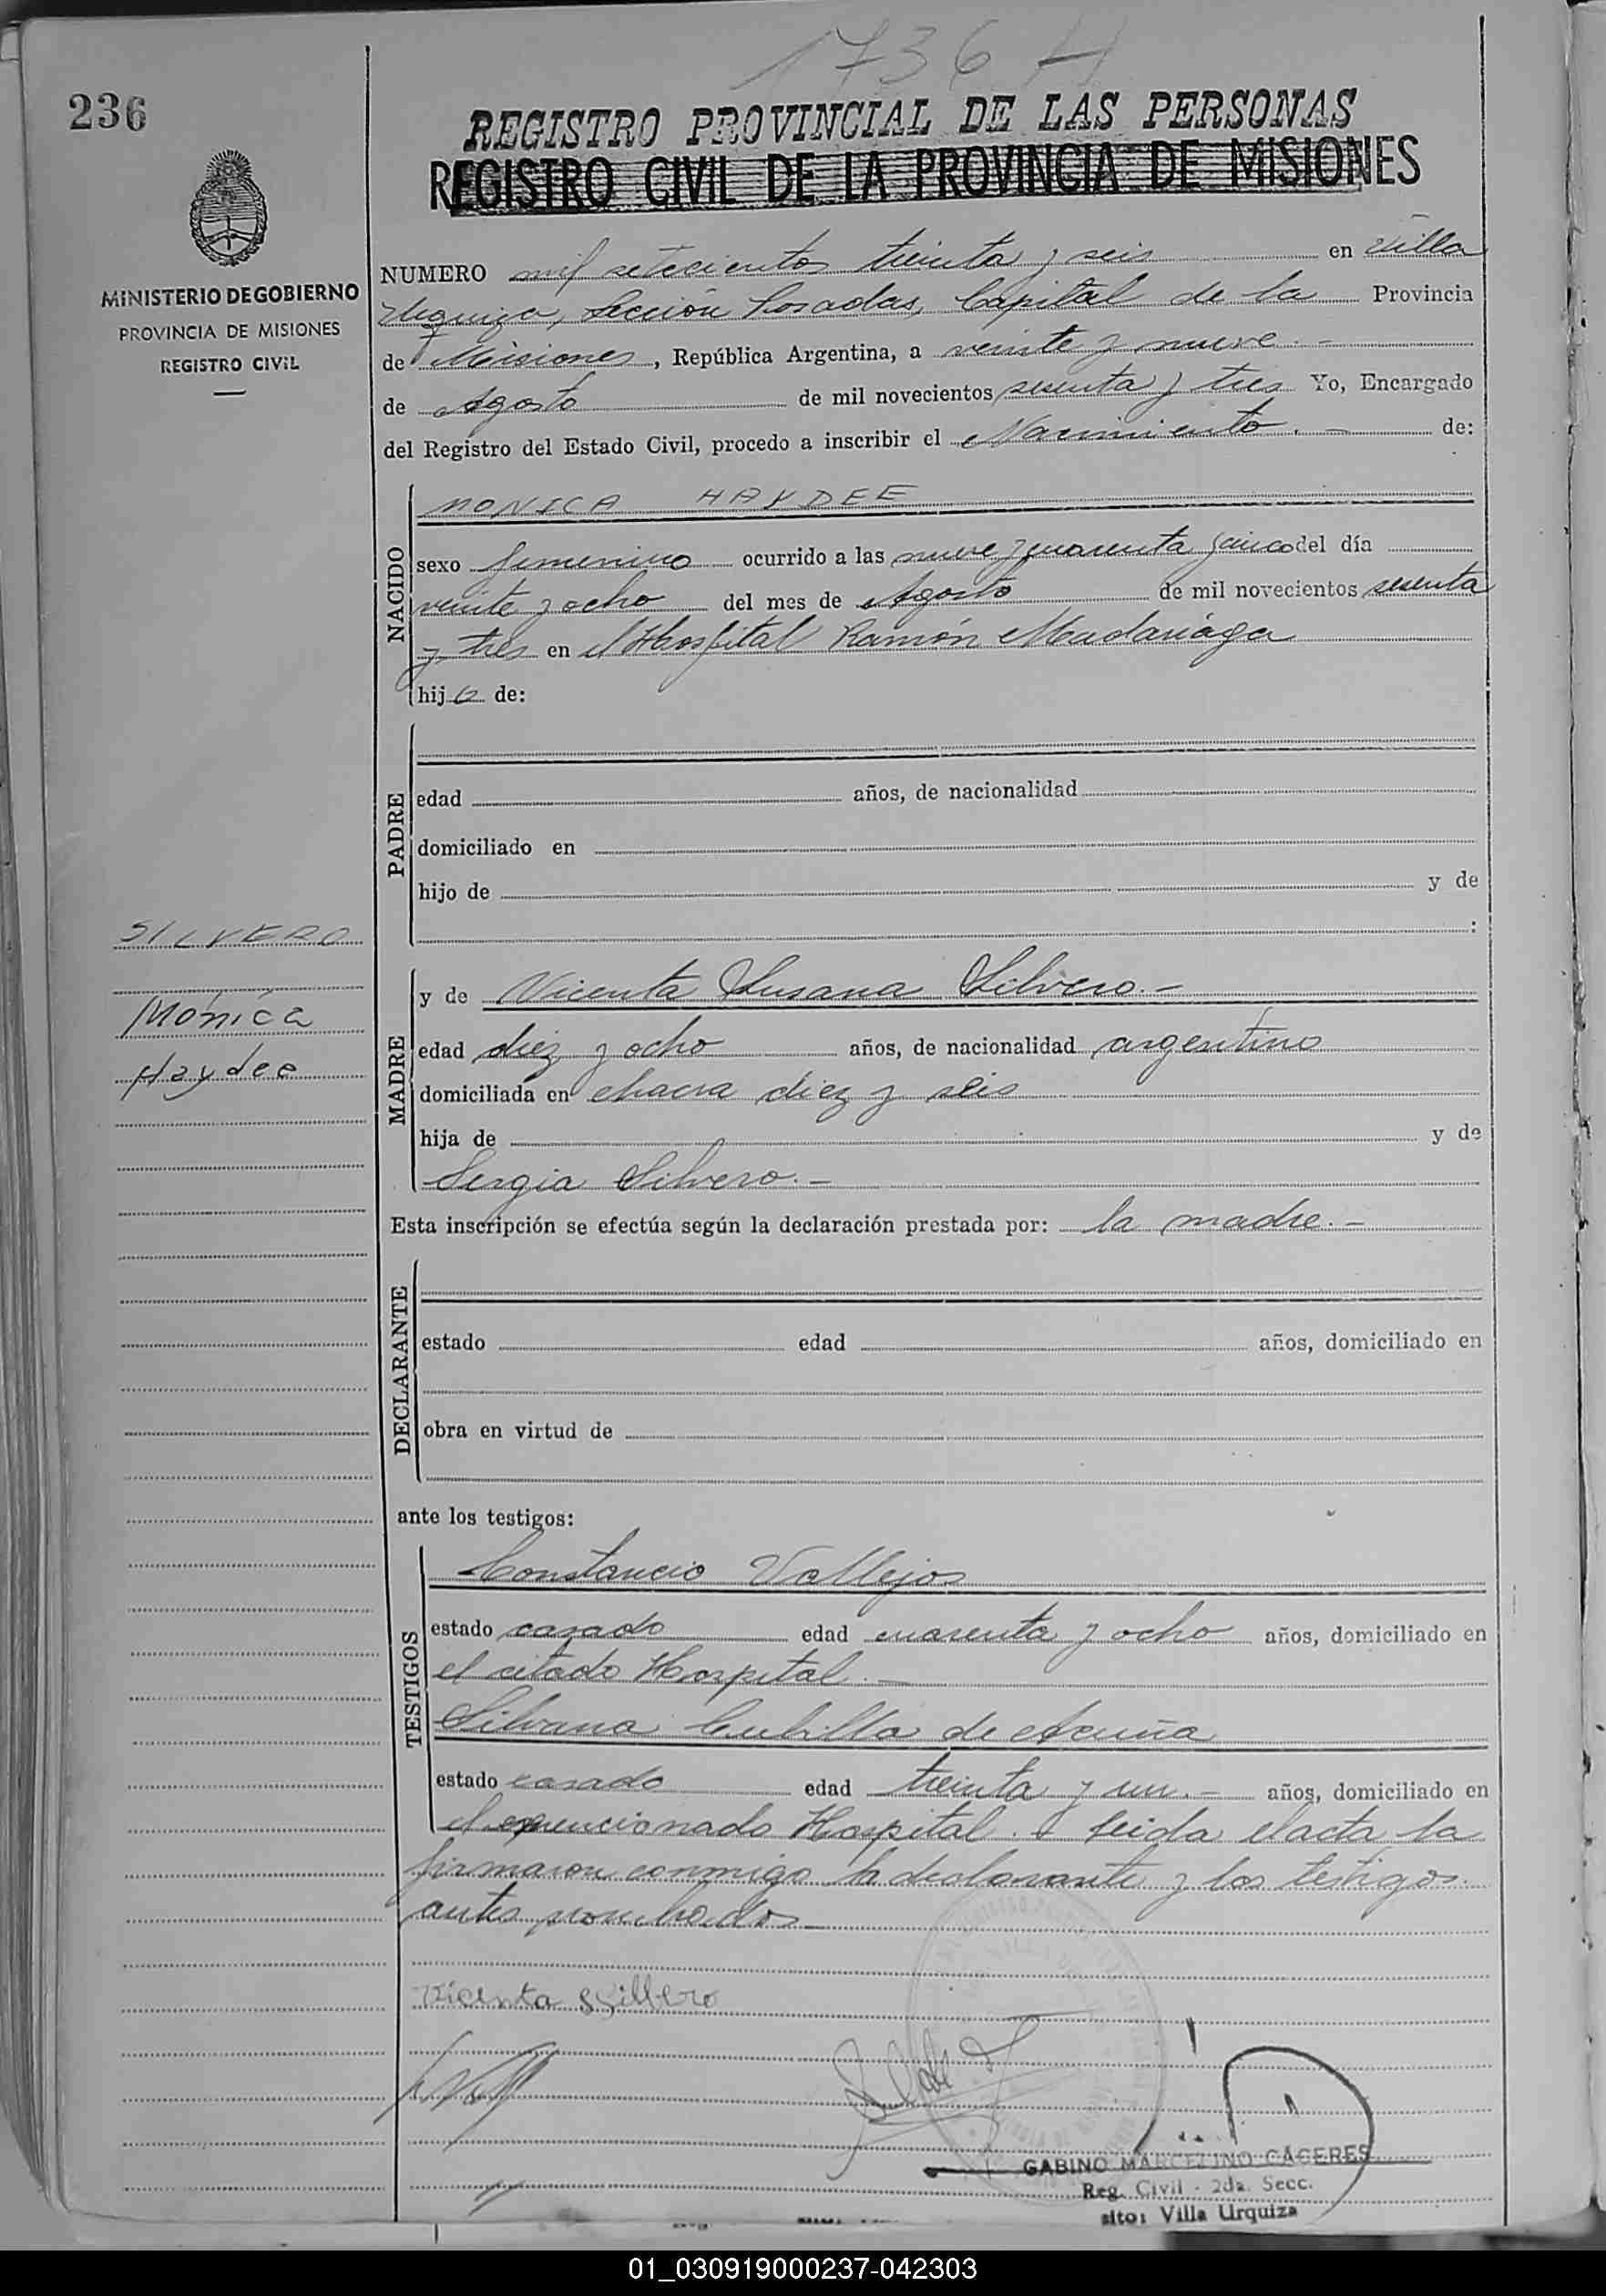 1736 H
236
REGISTRO PROVINCIAL DE LAS PERSONAS
REGISTRO CIVIL DE LA PROVINCIA DE MISIONES
MINISTERIO DE GOBIERNO
PROVINCIA DE MISIONES
REGISTRO CIVIL
NUMERO mil setecientos treinta y seis en Villa
Urquiza, Sección Posadas, Capital de la Provincia
de Misiones, República Argentina, a veinte y nueve.-
de Agosto de mil novecientos sesenta y tres Yo, Encargado
del Registro del Estado Civil, procedo a inscribir el Nacimiento.- de:
NACIDO
MONICA HAYDEE
sexo femenino ocurrido a las nueve y cuarenta y cinco del día
veinte y ocho del mes de Agosto de mil novecientos sesenta
y tres en el Hospital Ramón Madariaga
hija de:
PADRE
edad años, de nacionalidad
domiciliado en
hijo de y de
:
SILVERO
Mónica
Haydee
MADRE
y de Vicenta Susana Silvero.-
edad diez y ocho años, de nacionalidad argentino
domiciliada en chacra diez y seis
hija de y de
Sergia Silvero.-
Esta inscripción se efectúa según la declaración prestada por: la madre.-
DECLARANTE
estado edad años, domiciliado en
obra en virtud de
ante los testigos:
TESTIGOS
Constancio Vallejos
estado casado edad cuarenta y ocho años, domiciliado en
el citado Hospital.-
Silvana Cubilla de Acuña
estado casado edad treinta y un.- años, domiciliado en
el mencionado Hospital. Leida el acta la
firmaron conmigo la declarante y los testigos
antes nombrados
Vicenta Sillero
GABINO MARCELINO CACERES
Reg. Civil - 2da. Secc.
sito: Villa Urquiza
01_030919000237-042303